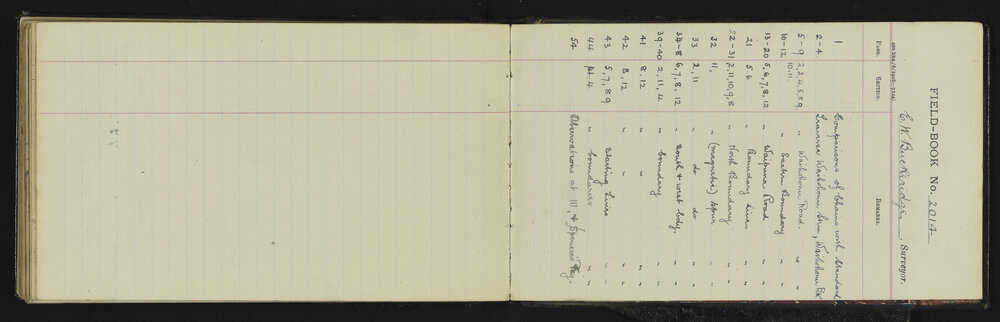 FIELD-BOOK No. 2014
C. W. Buckeridge, Surveyor.
PAGE. SECTION. REMARKS.
1 Comparisons of Chains with Standard
2-4 Traverse Waikohu Stm, Waikohu
5-9 2, 3, 4, 5, 8, 9, " Road. "
10, 11.
10-12 " Eastern Boundary "
13-20 5, 6, 7, 8, 12 " Waipuna Road "
21 5.6 " Boundary Lines "
22-31 2, 11, 10, 9, 8 " North Boundary "
32 11, " (magnetic) spur "
33 2, 11 " do do "
34-8 6, 7, 8, 12 " South & west bdy. "
39-40 2, 11, 4 " boundary "
41 8, 12 " " "
42 8, 12 " " "
43 5, 7, 8 9 Starting Lines "
44 pt. 4. " boundaries "
54 Observations at III, &